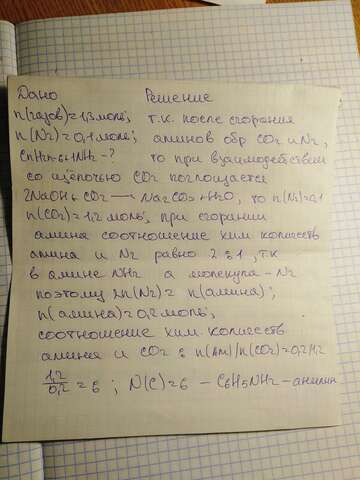 Дано Решение
n(газов)=1,3моль; т.к. после сгорания
n(N2)=0,1моль; аминов обр CO2 и N2,
CnH2n-6+1NH2-? то при взаимодействии
со щёлочью CO2 поглощается
2NaOH+CO2 → Na2CO3+H2O, то n(N2)=0,1
n(CO2)=1,2моль, при сгорании
амина соотношение хим количеств
амина и N2 равно 2:1, т.к
в амине NH2 а молекула - N2
поэтому 2n(N2)=n(амина);
n(амина)=0,2моль;
соотношение хим количеств
амина и CO2: n(Am)/n(CO2)=0,2/1,2
1,2/0,2=6; N(C)=6 - C6H5NH2-анилин